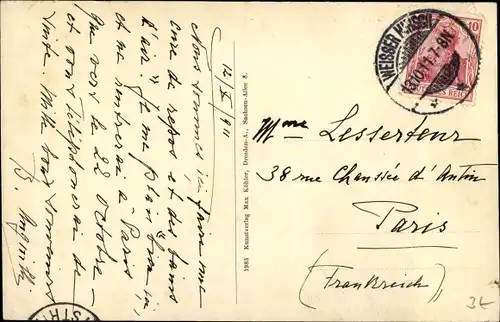 12/X 911
Nous sommes ici faire une
cure de repos et des bains
d'air. Je me plais bien ici,
et ne rentrerai a Paris
que vers le 22 Octobre
et vous téléphonerai de
suite. Mille bons souvenirs
1983 Kunstverlag Max Köhler, Dresden-A., Sachsen-Allee 8.
WEISSER HIRSCH
13.10.11.7-8N.
10
DEUTSCHES REICH
Mme Lesserteur
38 rue Chaussée d'Antin
Paris
(Frankreich)